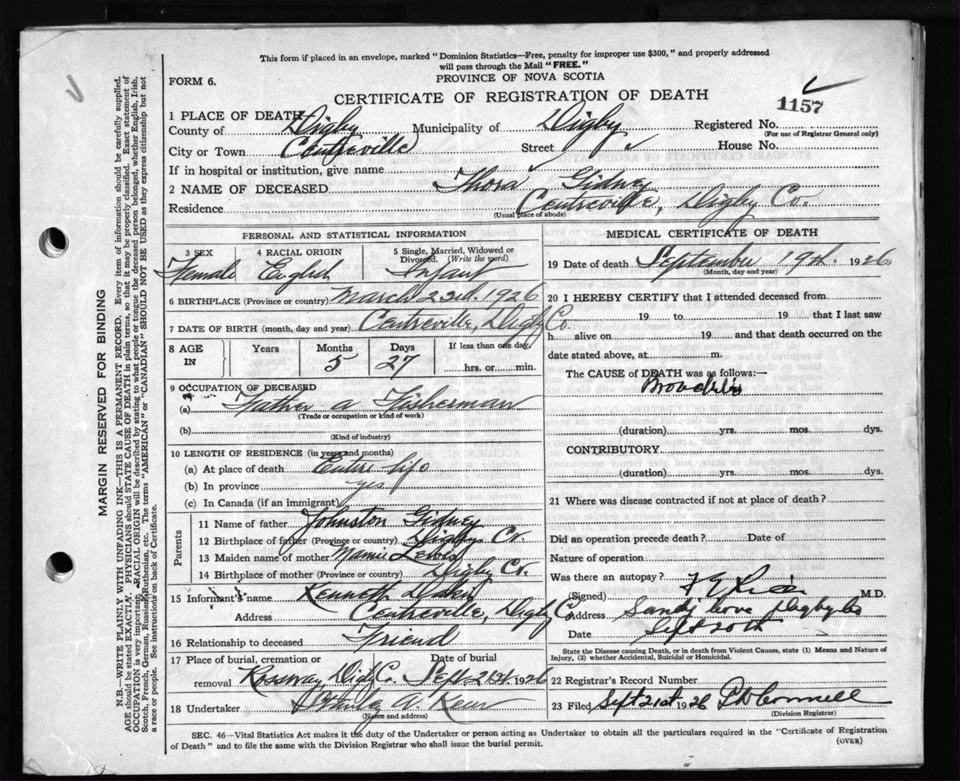 This form if placed in an envelope, marked "Dominion Statistics—Free, penalty for improper use $300," and properly addressed
will pass through the Mail "FREE."
FORM 6.
PROVINCE OF NOVA SCOTIA
CERTIFICATE OF REGISTRATION OF DEATH
1157
1 PLACE OF DEATH
County of Digby Municipality of Digby Registered No.
(For use of Registrar General only)
City or Town Centreville Street House No.
If in hospital or institution, give name
2 NAME OF DECEASED Thora Gidney
Residence Centreville, Digby Co.
(Usual place of abode)
PERSONAL AND STATISTICAL INFORMATION
3 SEX 4 RACIAL ORIGIN 5 Single, Married, Widowed or
Divorced. (Write the word)
Female English Infant
6 BIRTHPLACE (Province or country) March 23rd. 1926
7 DATE OF BIRTH (month, day and year) Centreville, Digby Co.
8 AGE IN Years Months Days If less than one day,
5 27 hrs. or min.
9 OCCUPATION OF DECEASED
(a) Father a Fisherman
(Trade or occupation or kind of work)
(b)
(Kind of industry)
10 LENGTH OF RESIDENCE (in years and months)
(a) At place of death Entire life
(b) In province yes
(c) In Canada (if an immigrant)
Parents
11 Name of father Johnston Gidney
12 Birthplace of father (Province or country) Digby Co.
13 Maiden name of mother Mamie Lewis
14 Birthplace of mother (Province or country) Digby Co.
15 Informant's name Kenneth
Address Centreville, Digby Co
16 Relationship to deceased Friend
17 Place of burial, cremation or Date of burial
removal Digby Co. Sept. 21st. 1926
18 Undertaker
(Name and address)
MEDICAL CERTIFICATE OF DEATH
19 Date of death September 19th. 1926.
(Month, day and year)
20 I HEREBY CERTIFY that I attended deceased from
19 to 19 that I last saw
h alive on 19 and that death occurred on the
date stated above, at m.
The CAUSE of DEATH was as follows:—
(duration) yrs. mos. dys.
CONTRIBUTORY.
(duration) yrs. mos. dys.
21 Where was disease contracted if not at place of death?
Did an operation precede death? Date of
Nature of operation
Was there an autopsy?
(Signed) F E Rice M.D.
Address Sandy Cove Digby Co
Date Sept 20th
State the Disease causing Death, or in death from Violent Causes, state (1) Means and Nature of
Injury, (2) whether Accidental, Suicidal or Homicidal.
22 Registrar's Record Number
23 Filed Sept 21st 1926
(Division Registrar)
SEC. 46—Vital Statistics Act makes it the duty of the Undertaker or person acting as Undertaker to obtain all the particulars required in the "Certificate of Registration
of Death" and to file the same with the Division Registrar who shall issue the burial permit.
(OVER)
MARGIN RESERVED FOR BINDING
N.B.—WRITE PLAINLY WITH UNFADING INK—THIS IS A PERMANENT RECORD. Every item of information should be carefully supplied.
AGE should be stated EXACTLY. PHYSICIANS should STATE CAUSE OF DEATH in plain terms, so that it may be properly classified. Exact statement of
OCCUPATION is very important. RACIAL ORIGIN will be described by stating to what people or tongue the deceased person belonged, whether English, Irish,
Scotch, French, German, Russian, Ruthenian, etc. The terms "AMERICAN" or "CANADIAN" SHOULD NOT BE USED as they express citizenship but not
a race or people. See instructions on back of Certificate.